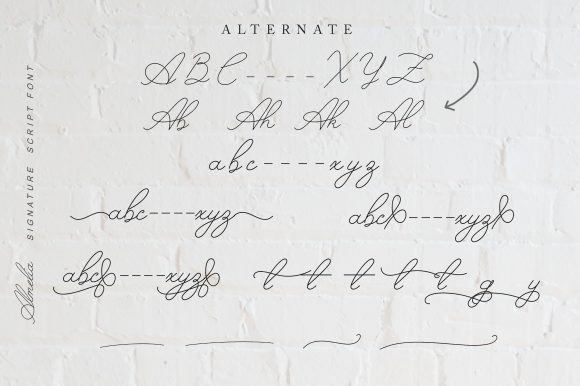 ALTERNATE
ABC----XYZ
Ab Ah Ak Al
abc----xyz
abc---xyz abc----xyz
abc----xyz t t t t t g y
Almelia SIGNATURE SCRIPT FONT